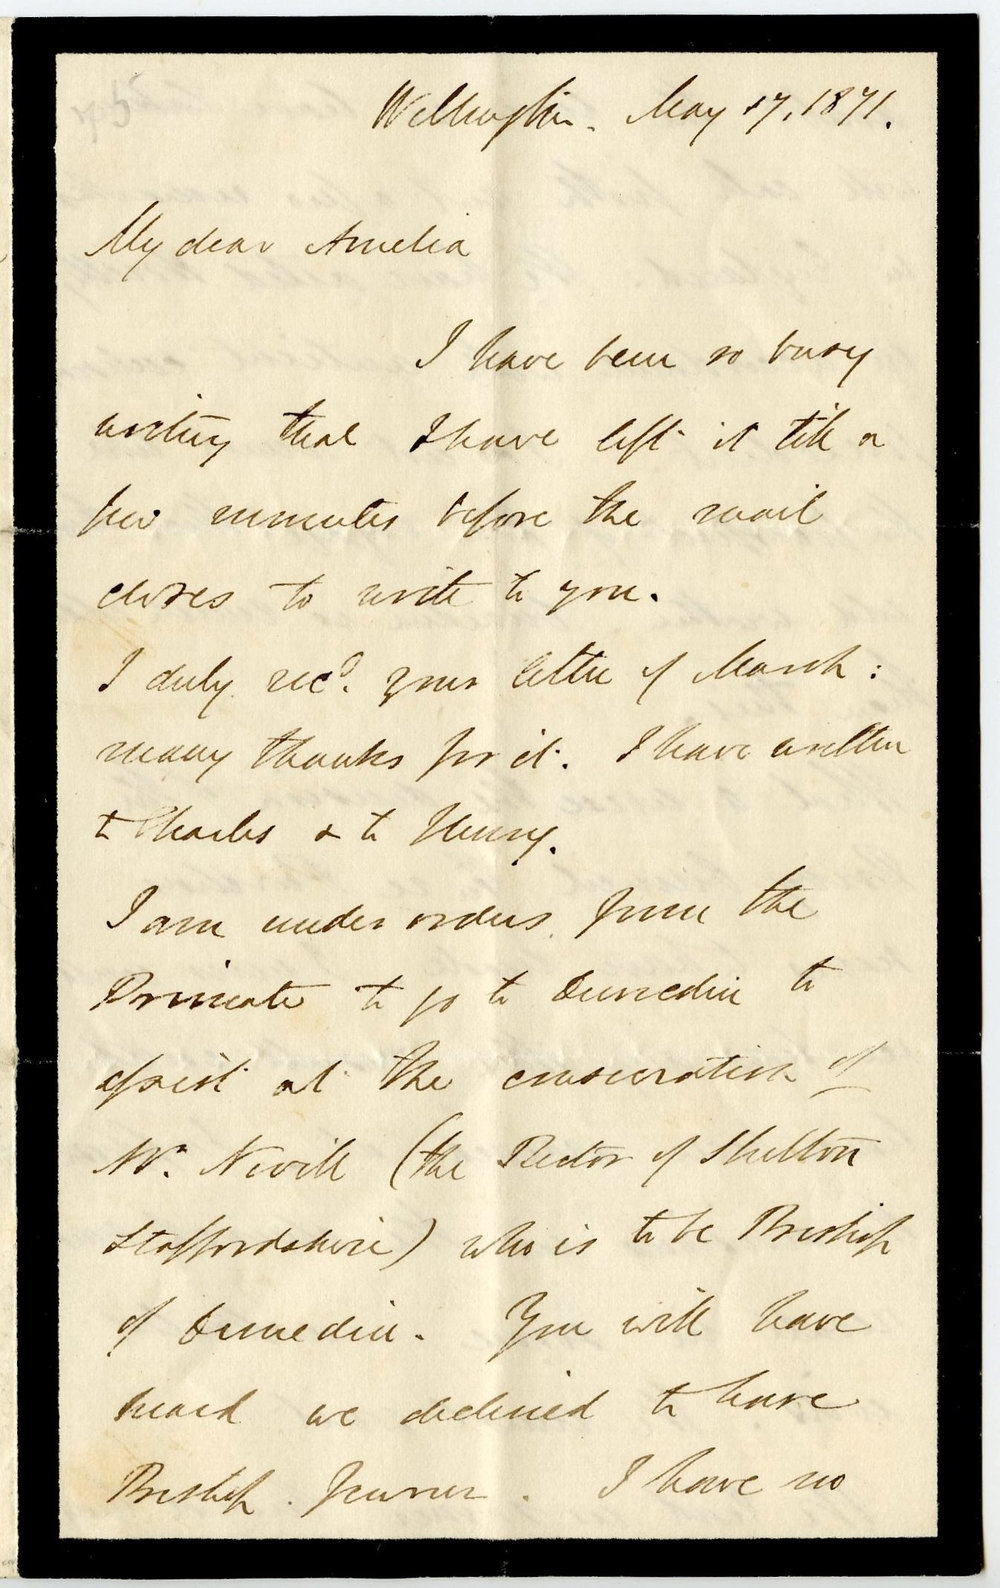 Wellington. May 17, 1871.
My dear Amelia
I have been so busy
writing that I have left it till a
few minutes before the mail
closes to write to you.
I duly recd. your letter of March:
many thanks for it. I have written
to Charles & to Henry.
I am under orders from the
Primate to go to Dunedin to
assist at the consecration of
Mr. Nevill (the Rector of Shelton
Staffordshire) who is to be Bishop
of Dunedin. You will have
heard we declined to have
Bishop Jenner. I have no